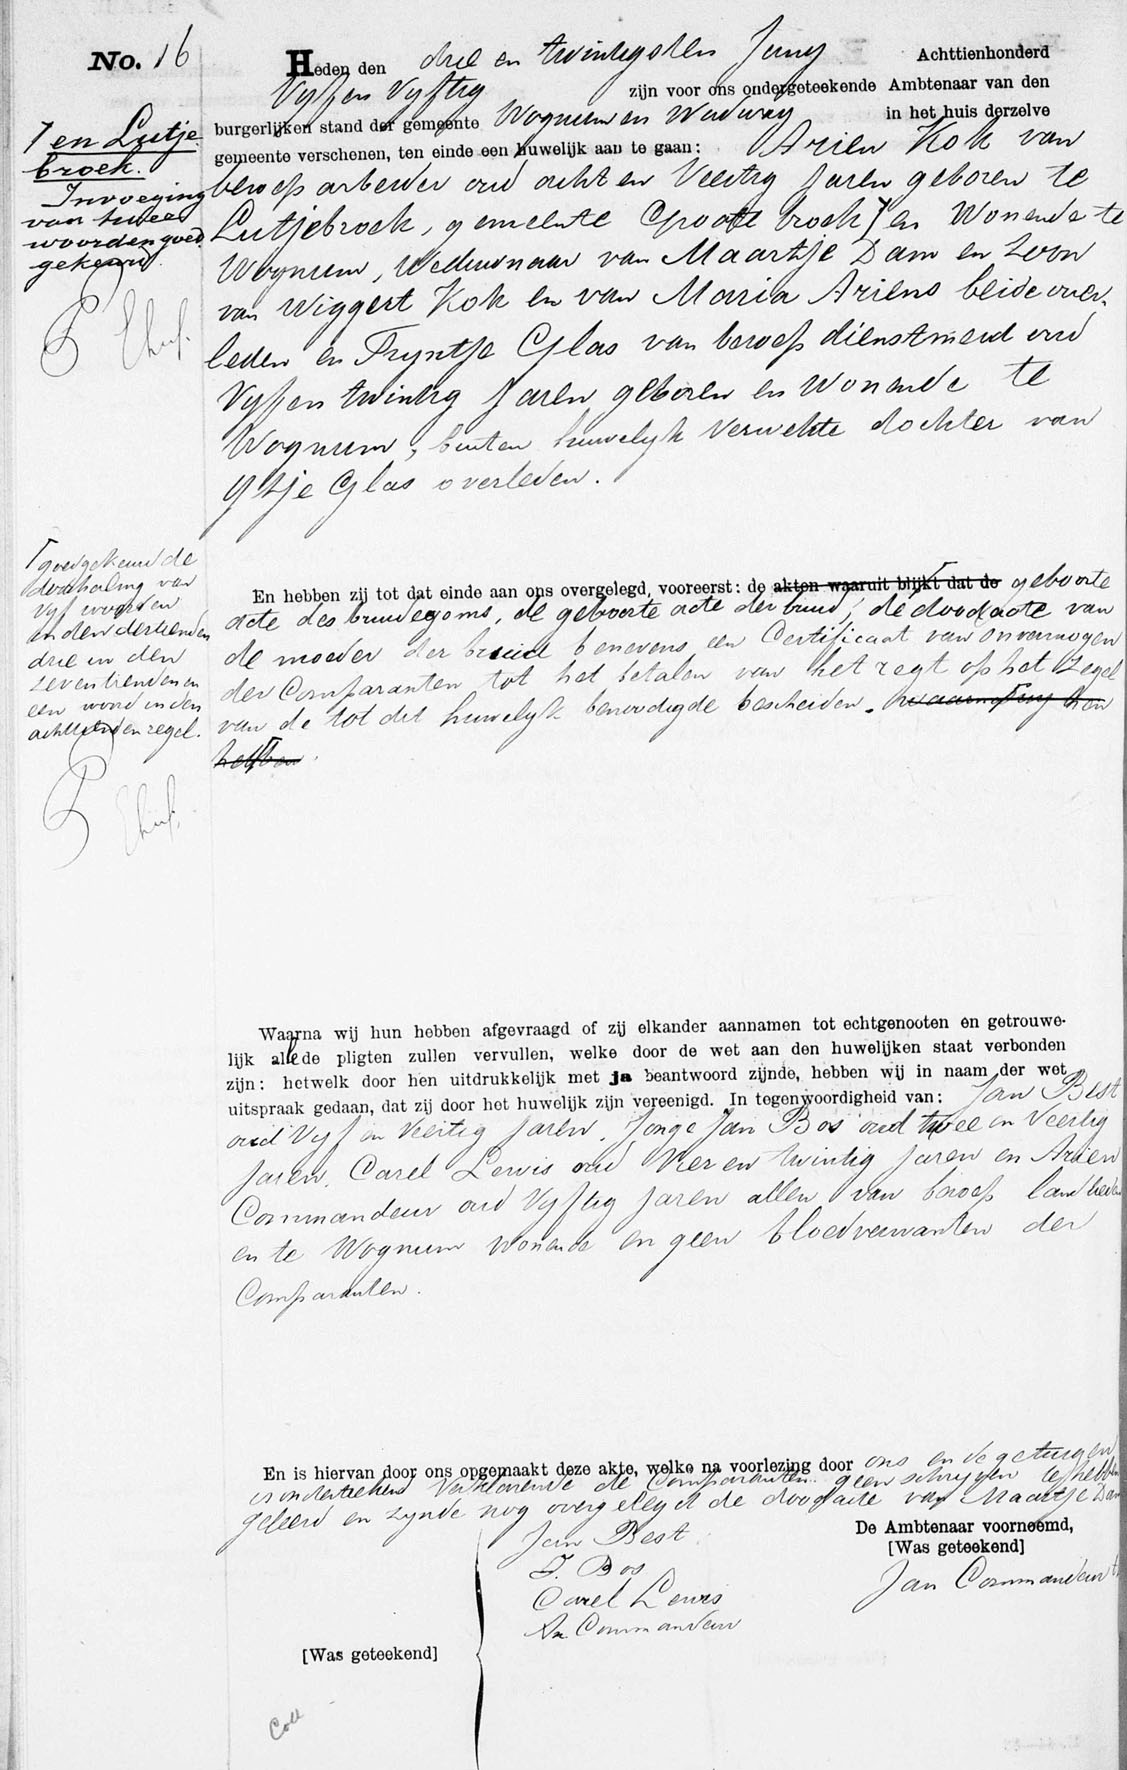 No. 16
Heden den drie en twintigsten Juny Achttienhonderd
Vyf en Vyftig zijn voor ons ondergeteekende Ambtenaar van den
burgerlijken stand der gemeente Wognum en Wadway in het huis derzelve
gemeente verschenen, ten einde een huwelijk aan te gaan: Arien Kok van
beroep arbeider oud acht en Veertig Jaren geboren te
Lutjebroek, gemeente Grootebroek en Wonende te
Wognum, Weduwnaar van Maartje Dam en Zoon
van Wiggert Kok en van Maria Ariens beide over-
leden en Tryntje Glas van beroep dienstmeid oud
Vyf en twintig Jaren geboren en Wonende te
Wognum, buiten huwelyk Verwekte dochter van
Ytje Glas overleden.
7 en Lutje
broek.
Invoeging
van twee
woorden goed
gekeurd.
En hebben zij tot dat einde aan ons overgelegd, vooreerst: de akten waaruit blijkt dat de geboorte
acte des bruidegoms, de geboorte acte der bruid, de doodacte van
de moeder der bruid benevens een Certificaat van onvermogen
der Comparanten tot het betalen van het regt op het Zegel
van de tot dit huwelyk benoodigde bescheiden. waarna wy hen
hebben
goedgekeurd de
doorhaling van
Vyf woorden
in den dertienden
drie in den
zeventienden en
een woord in den
achttienden regel.
Waarna wij hun hebben afgevraagd of zij elkander aannamen tot echtgenooten en getrouwe-
lijk alle de pligten zullen vervullen, welke door de wet aan den huwelijken staat verbonden
zijn: hetwelk door hen uitdrukkelijk met ja beantwoord zijnde, hebben wij in naam der wet
uitspraak gedaan, dat zij door het huwelijk zijn vereenigd. In tegenwoordigheid van: Jan Best
oud Vyf en Veertig Jaren, Jonge Jan Bos oud twee en Veertig
Jaren, Carel Lewis oud Vier en twintig Jaren en Arien
Commandeur oud Vyftig Jaren allen van beroep landlieden
en te Wognum wonende en geen bloedverwanten der
Comparanten.
En is hiervan door ons opgemaakt deze akte, welke na voorlezing door ons en de getuigen
is onderteekend Verklarende de Comparanten geen schryven te hebben
geleerd en zynde nog overgelegd de doodacte van Maartje Dam
Jan Best
J. Bos
Carel Lewis
Ar. Commandeur
[Was geteekend]
De Ambtenaar voornoemd,
[Was geteekend]
Jan Commandeur
Coll